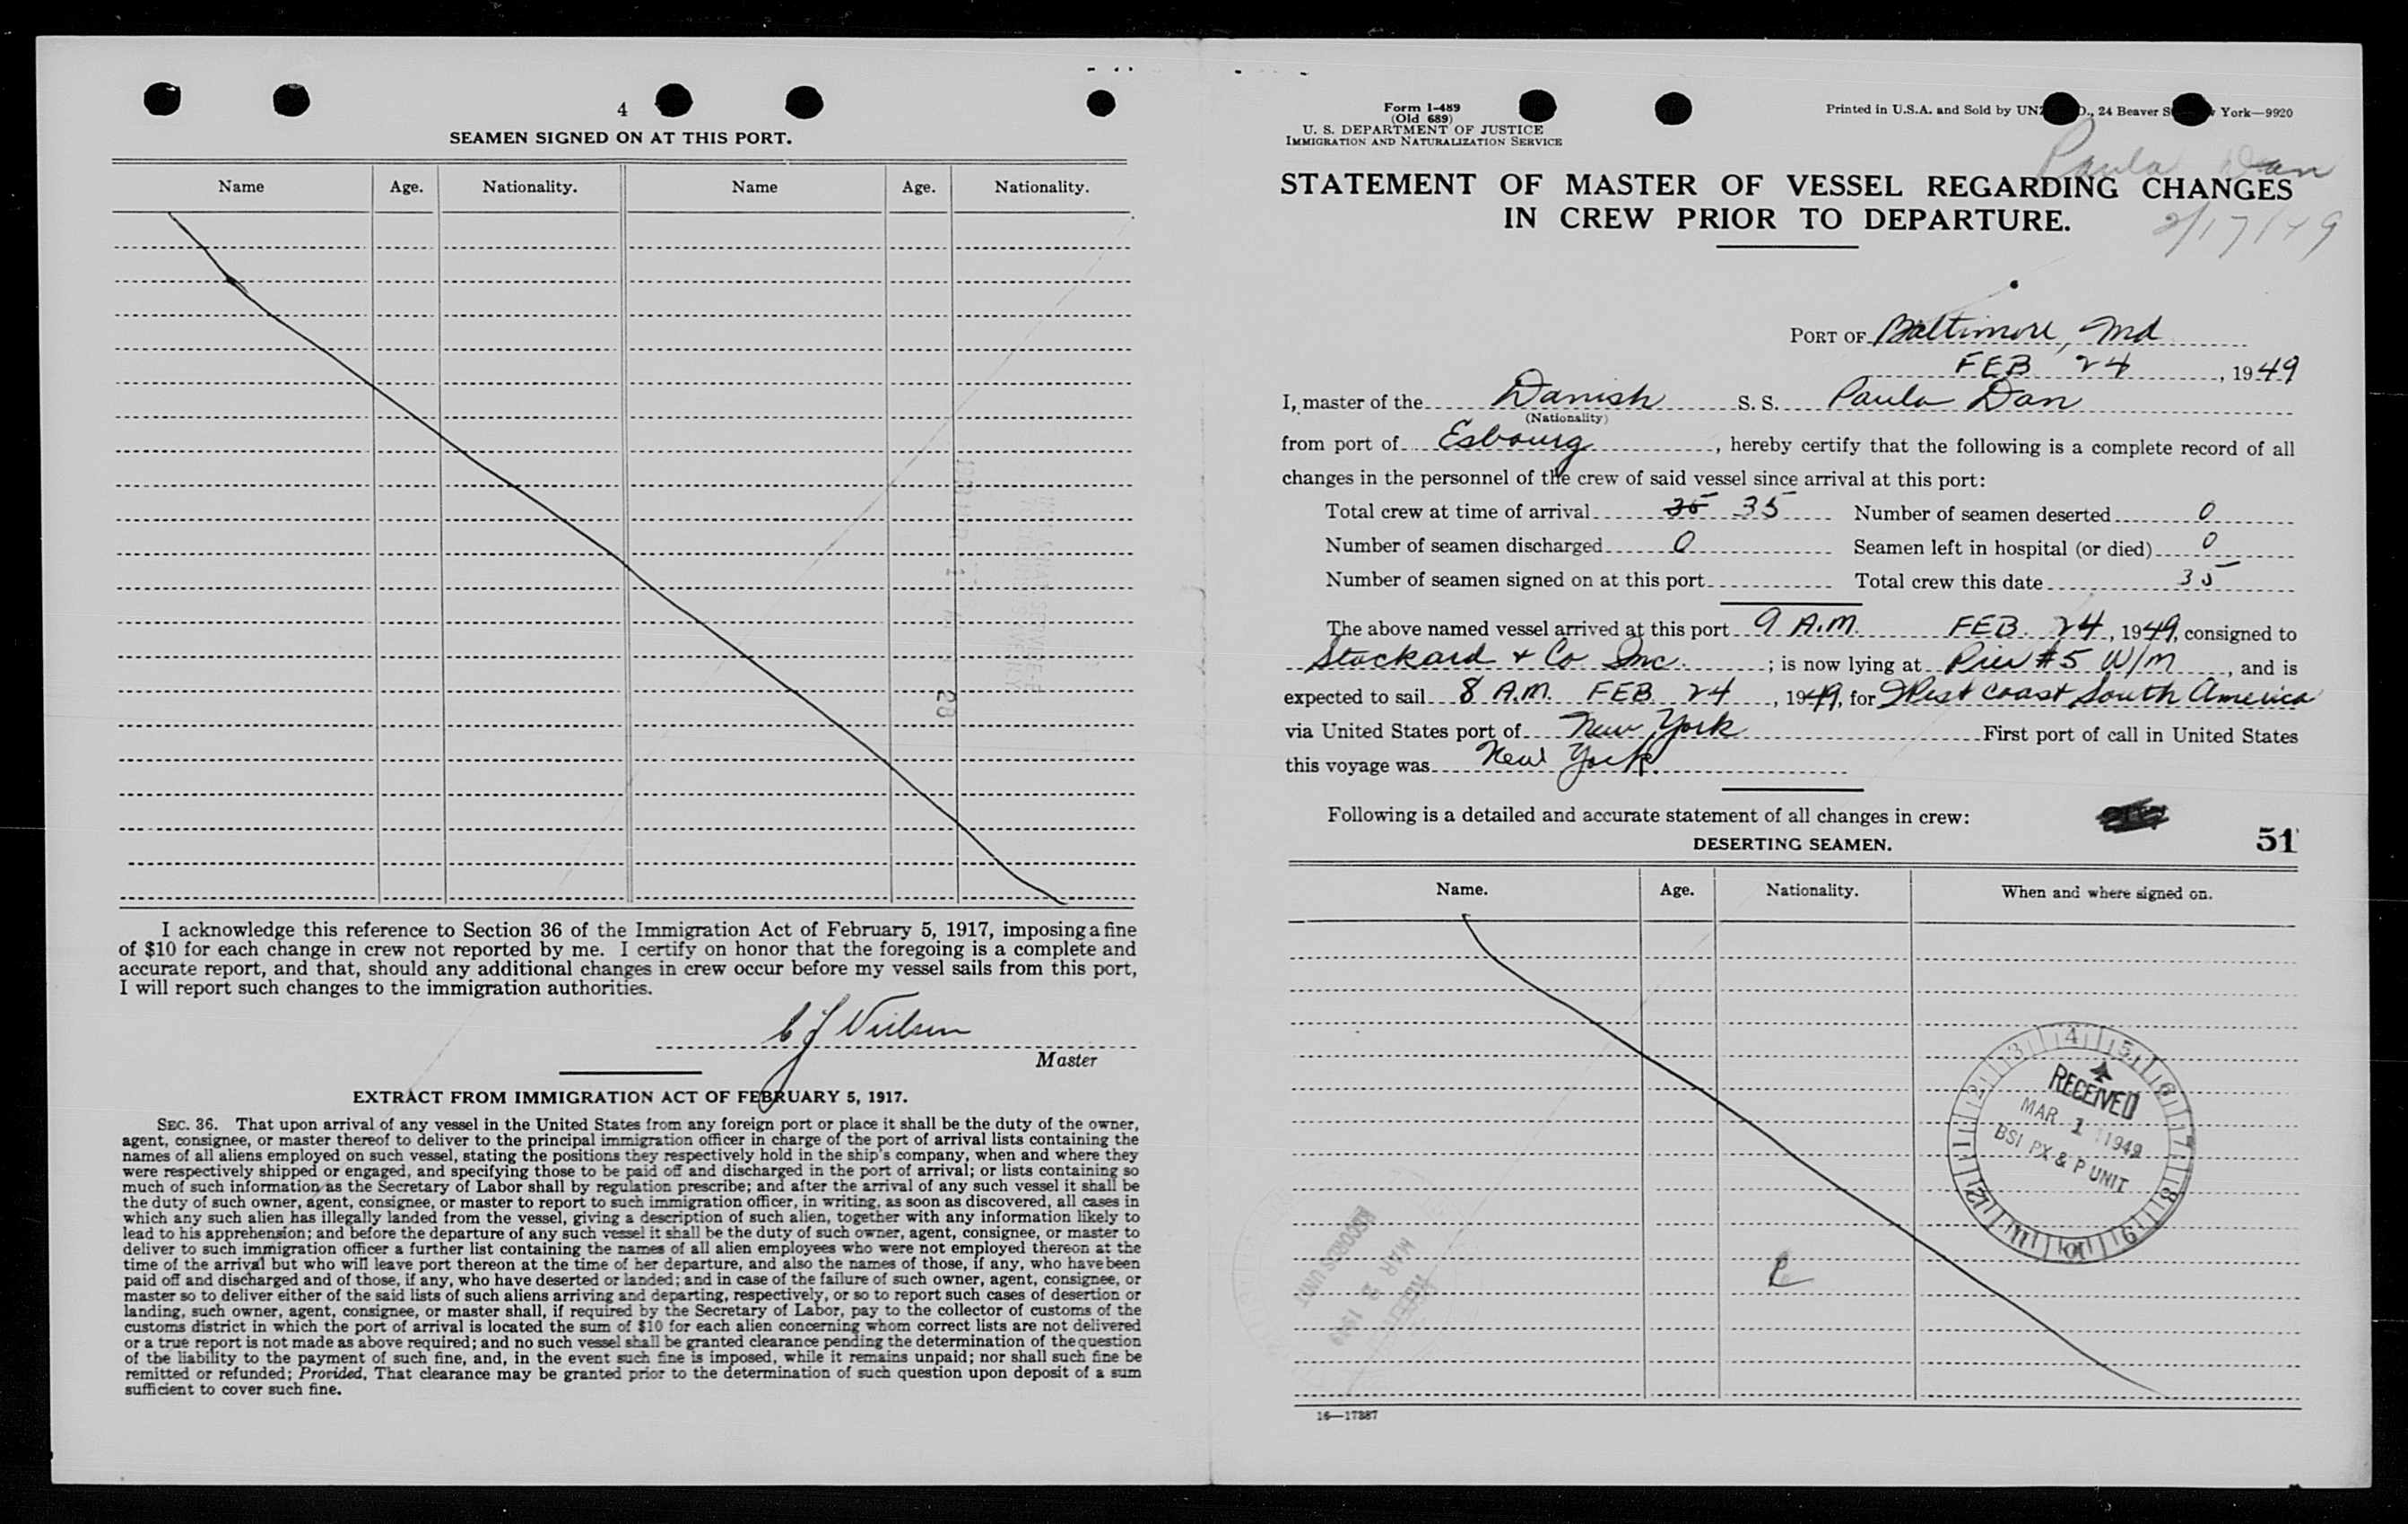 4
SEAMEN SIGNED ON AT THIS PORT.
Name Age. Nationality. Name Age. Nationality.
28
I acknowledge this reference to Section 36 of the Immigration Act of February 5, 1917, imposing a fine
of $10 for each change in crew not reported by me. I certify on honor that the foregoing is a complete and
accurate report, and that, should any additional changes in crew occur before my vessel sails from this port,
I will report such changes to the immigration authorities.
C J Nielsen
Master
EXTRACT FROM IMMIGRATION ACT OF FEBRUARY 5, 1917.
SEC. 36. That upon arrival of any vessel in the United States from any foreign port or place it shall be the duty of the owner,
agent, consignee, or master thereof to deliver to the principal immigration officer in charge of the port of arrival lists containing the
names of all aliens employed on such vessel, stating the positions they respectively hold in the ship's company, when and where they
were respectively shipped or engaged, and specifying those to be paid off and discharged in the port of arrival; or lists containing so
much of such information as the Secretary of Labor shall by regulation prescribe; and after the arrival of any such vessel it shall be
the duty of such owner, agent, consignee, or master to report to such immigration officer, in writing, as soon as discovered, all cases in
which any such alien has illegally landed from the vessel, giving a description of such alien, together with any information likely to
lead to his apprehension; and before the departure of any such vessel it shall be the duty of such owner, agent, consignee, or master to
deliver to such immigration officer a further list containing the names of all alien employees who were not employed thereon at the
time of the arrival but who will leave port thereon at the time of her departure, and also the names of those, if any, who have been
paid off and discharged and of those, if any, who have deserted or landed; and in case of the failure of such owner, agent, consignee, or
master so to deliver either of the said lists of such aliens arriving and departing, respectively, or so to report such cases of desertion or
landing, such owner, agent, consignee, or master shall, if required by the Secretary of Labor, pay to the collector of customs of the
customs district in which the port of arrival is located the sum of $10 for each alien concerning whom correct lists are not delivered
or a true report is not made as above required; and no such vessel shall be granted clearance pending the determination of the question
of the liability to the payment of such fine, and, in the event such fine is imposed, while it remains unpaid; nor shall such fine be
remitted or refunded; Provided, That clearance may be granted prior to the determination of such question upon deposit of a sum
sufficient to cover such fine.
Form I-489
(Old 689)
U. S. DEPARTMENT OF JUSTICE
IMMIGRATION AND NATURALIZATION SERVICE
Printed in U.S.A. and Sold by 24 Beaver York—9920
Paula Dan
2/17/49
STATEMENT OF MASTER OF VESSEL REGARDING CHANGES
IN CREW PRIOR TO DEPARTURE.
PORT OF Baltimore, Md
FEB 24, 1949
I, master of the Danish S. S. Paula Dan
(Nationality)
from port of Esbourg, hereby certify that the following is a complete record of all
changes in the personnel of the crew of said vessel since arrival at this port:
Total crew at time of arrival 35 35 Number of seamen deserted 0
Number of seamen discharged 0 Seamen left in hospital (or died) 0
Number of seamen signed on at this port Total crew this date 35
The above named vessel arrived at this port 9 A.M. FEB. 24, 1949, consigned to
Stockard & Co Inc.; is now lying at Pier #5 W/M, and is
expected to sail 8 A.M. FEB 24, 1949, for West Coast South America
via United States port of New York First port of call in United States
this voyage was New York.
Following is a detailed and accurate statement of all changes in crew:
51
DESERTING SEAMEN.
Name. Age. Nationality. When and where signed on.
RECEIVED
MAR 1 1949
BSI PX & P UNIT
1 2 3 4 5 6 7 8 9 10 11 12
RECEIVED
MAR 2 1949
RECORDS UNIT
16—17387